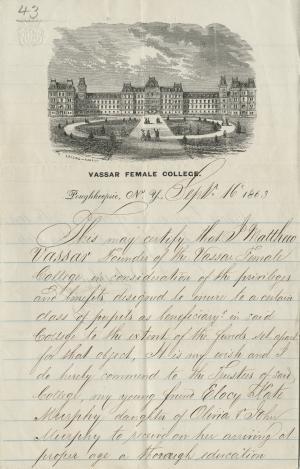 43
VASSAR FEMALE COLLEGE.
Poughkeepsie, N. Y. Sept. 16 1863
This may certify that I Matthew
Vassar Founder of the Vassar Female
College in consideration of the privileges
and benefits designed to enure to a certain
class of pupils as beneficiary in said
College to the extent of the funds set apart
for that object, It is my wish and I
do hereby commend to the Trustees of said
College, my young friend Kate
Murphy daughter of & John
Murphy to receive on her arriving at
proper age a thorough education